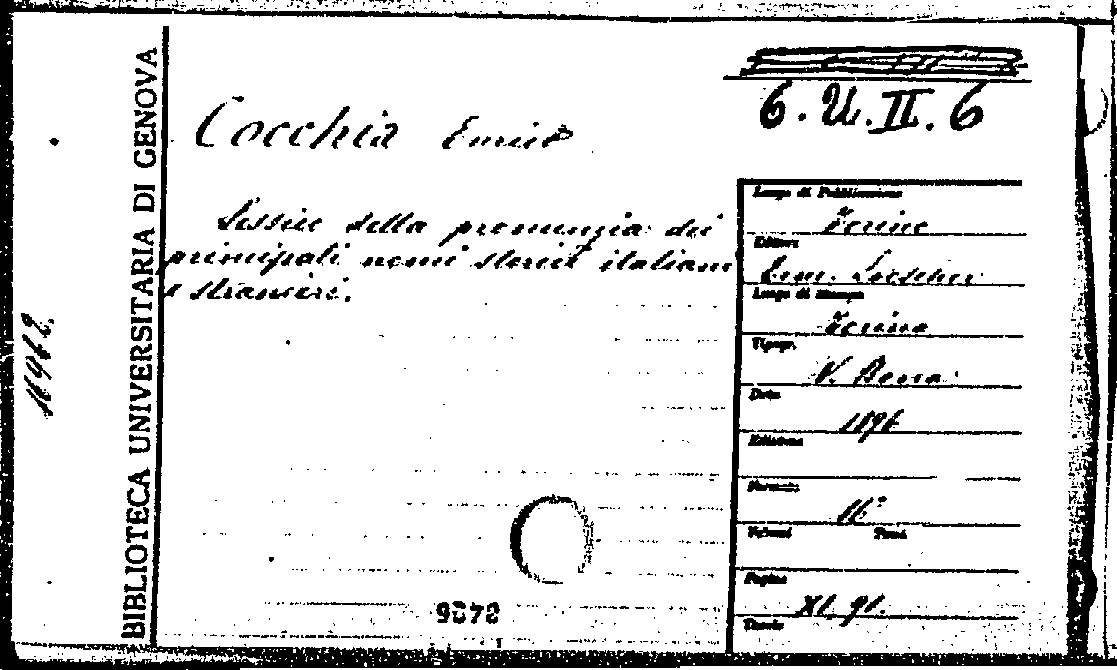 BIBLIOTECA UNIVERSITARIA DI GENOVA
6.U.II.6
Cocchia Enrico
Lessico della pronunzia dei
principali nomi storici italiani
e stranieri.
Luogo di Pubblicazione
Torino
Editore
Erm. Loescher
Luogo di Stampa
Torino
Tipogr.
V. Bona
Data
Edizione
Formato
16°
Volumi Tomi
Pagine
XI. 91.
Tavole